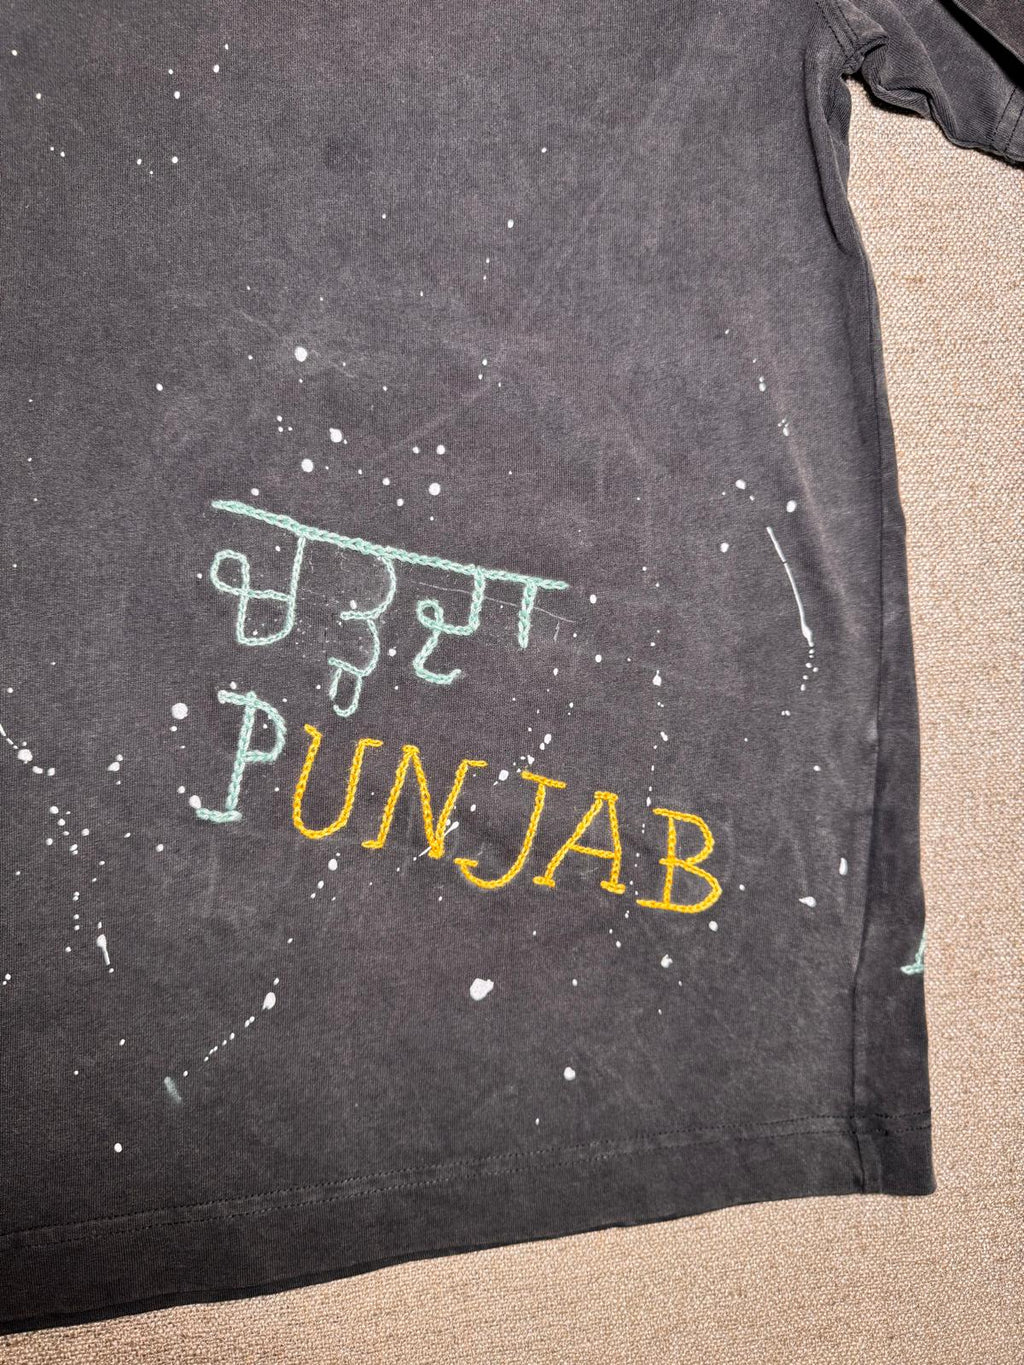 ਚੜਦਾ
PUNJAB